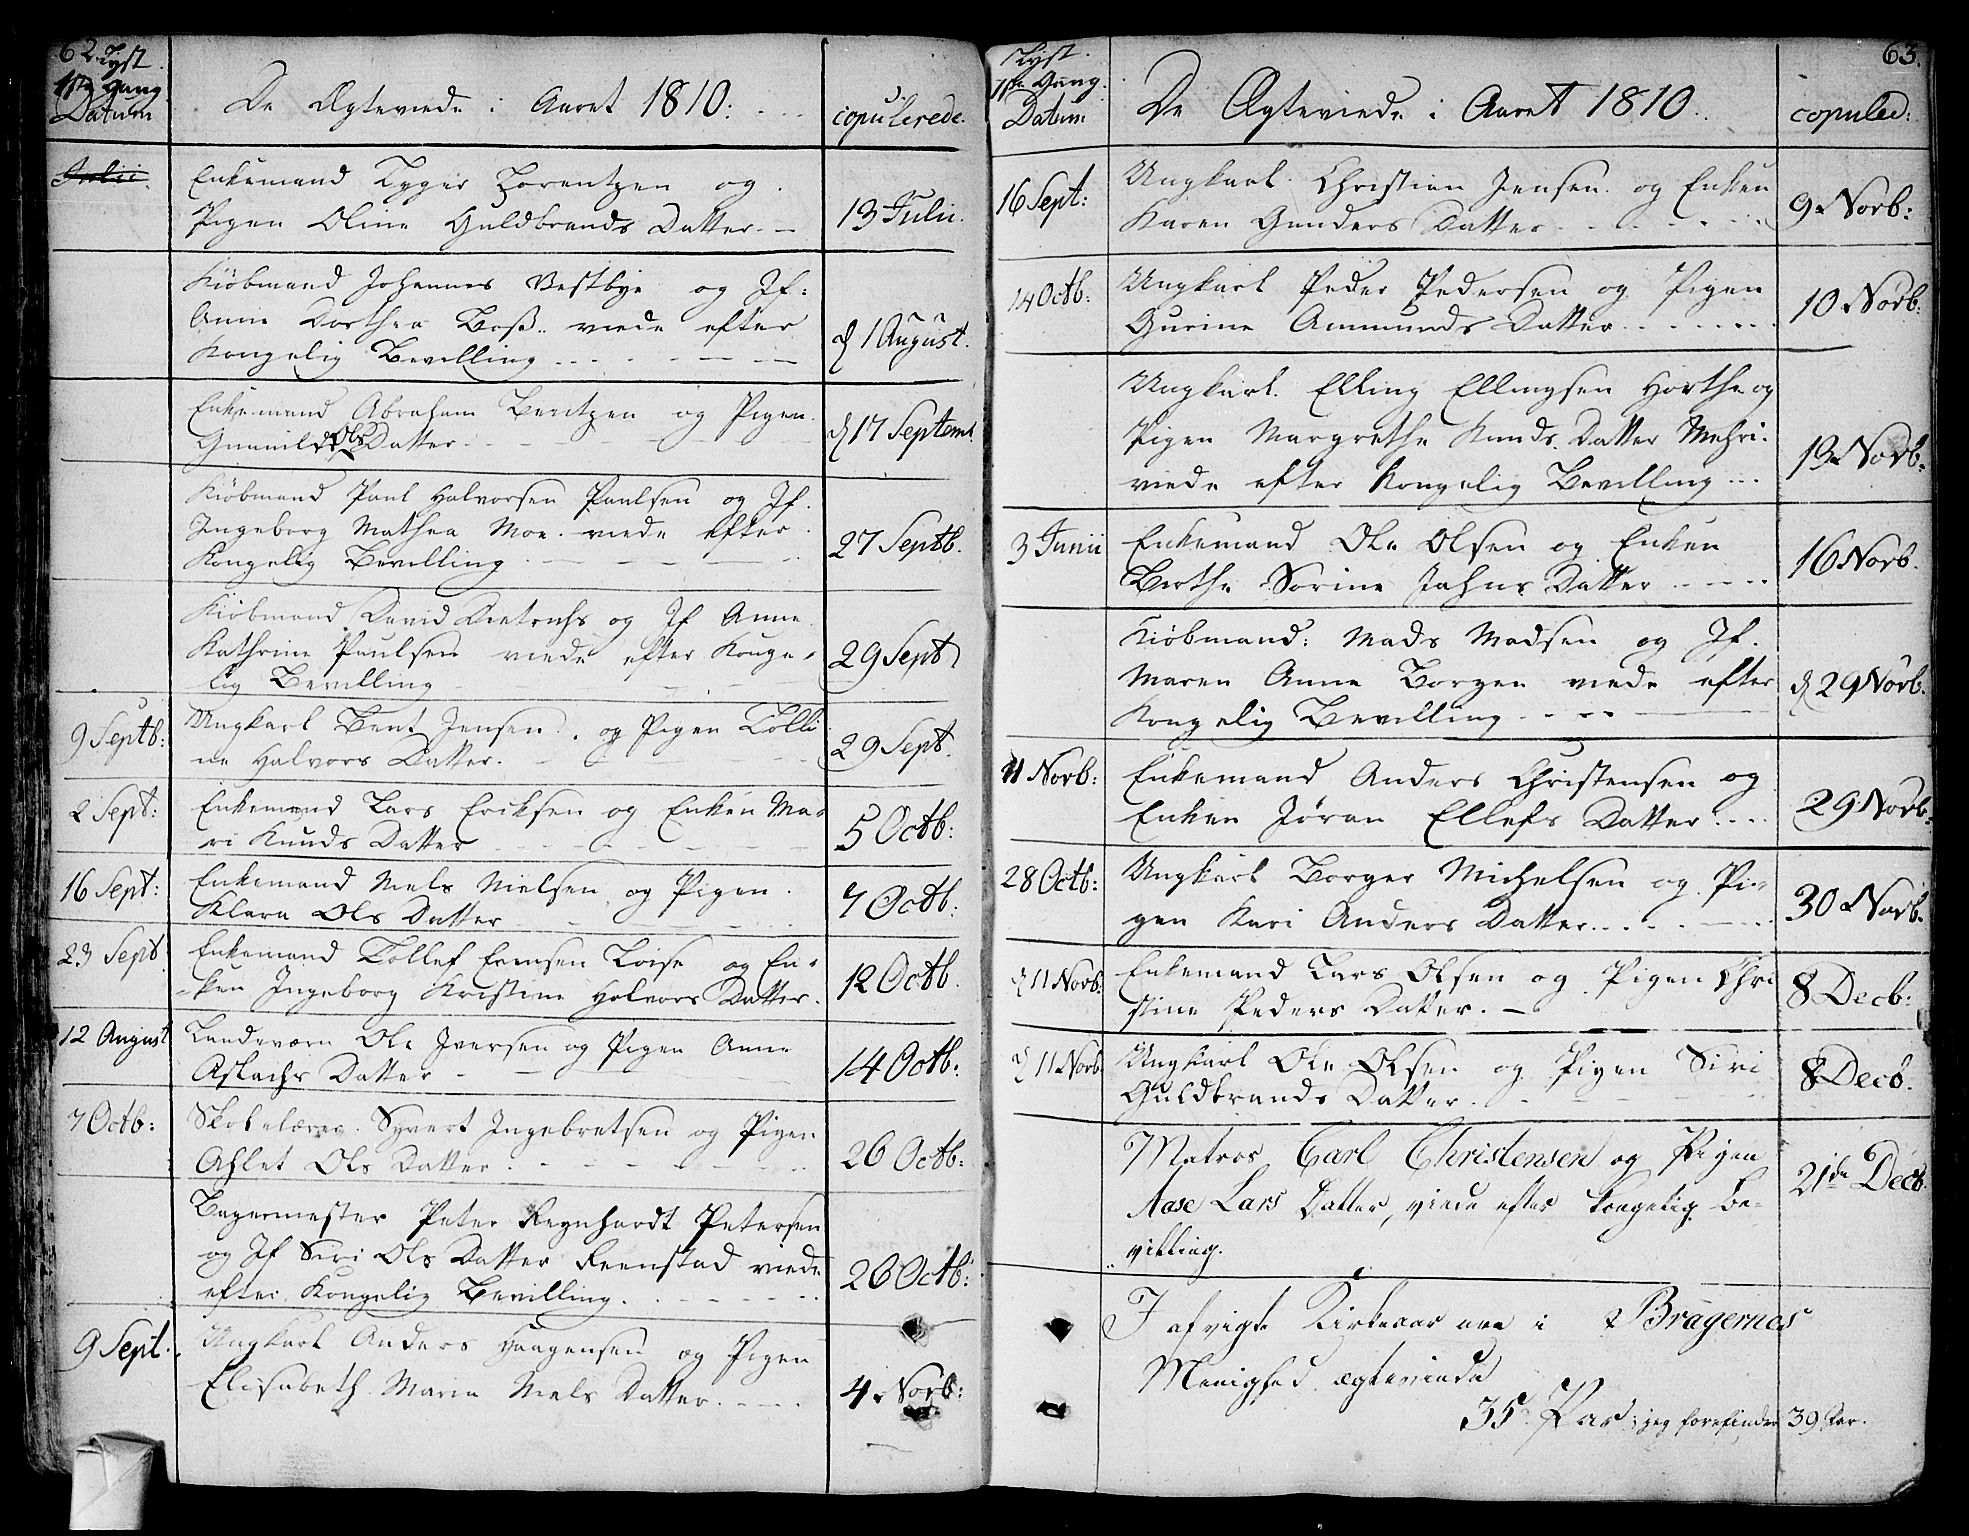 62.
Lyst
1ste Gang
Datum
De Ægteviede i Aaret 1810.
copulerede.
Julii.
Enkemand Tyger Lorentzen og
Pigen Oline Guldbrands Datter
13 Julii.
Kiöbmand Johannes Vestbye og Jf:
Anne Dorthea Boß.. viede efter
Kongelig Bevilling
d 1 August.
Enkemand Abraham Berntzen og Pigen
Gunnild Ols Datter
d 17 Septemb
Kiöbmand Paul Halvorsen Paulsen og Jf.
Ingeborg Mathea Moe. viede efter
Kongelig Bevilling
27 Septb.
Kiöbmand David Dietrichs og Jf Anne
Kathrine Paulsen viede efter Konge-
lig Bevilling
29 Sept
9 Septb:
Ungkarl Bent Jensen. og Pigen Tolli
ne Halvors Datter.
29 Sept.
2 Sept:
Enkemand Lars Ericksen og Enken Ma-
ri Knuds Datter
5 Octb:
16 Sept:
Enkemand Niels Nielsen og Pigen
Klara Ols Datter
7 Octb:
23 Sept
Enkemand Tollef Loise og En-
-ken Ingeborg Kristine Halvors Datter.
12 Octb.
12 August
Landeværn Ole Iversen og Pigen Anne
Aslachs Datter
14 Octb:
7 Octb:
Syvert Ingebretsen og Pigen
Ahlet Ols Datter
26 Octb:
Bagermester Peter Reynhardt Petersen
og Jf Siri Ols Datter Reenstad viede
efter Kongelig Bevilling.
26 Octb:
9 Sept.
Ungkarl Anders Haagensen og Pigen
Elisabeth Maria Niels Datter.
4 Novb:
63.
Lyst
1ste Gang.
Datum
De Ægteviede i Aaret 1810.
copuled:
16 Sept:
Ungkarl Christian Jensen og Enken
Karen Gunders Datter
9 Novb:
14 Octb:
Ungkarl Peder Pedersen og Pigen
Gurine Ammunds Datter
10 Novb:
Ungkarl. Elling Ellingsen Horthe og
Pigen Margrethe Knuds Datter Mehri.
viede efter Kongelig Bevilling
13 Novb:
3 Junii
Enkemand Ole Olsen og Enken
Berthe Sorine Jahns Datter
16 Novb.
Kiöbmand: Mads Madsen og Jf.
Maren Anne Borgen viede efter
Kongelig Bevilling
d 29 Novb.
11 Novb:
Enkemand Anders Christensen og
Enken Jøran Ellefs Datter
29 Novb:
28 Octb:
Ungkarl Borger Michelsen og Pi-
gen Kari Anders Datter
30 Novb.
d 11 Novb:
Enkemand Lars Olsen og Pigen Chri
stine Peders Datter.
8 Decb:
d 11 Novb
Ungkarl Ole Olsen og Pigen Siri
Guldbrands Datter.
8 Decb.
Matros Carl Christensen og Pigen
Aase Lars Datter, viede efter kongelig Be-
villing.
21de Decb.
I afvigte Kirkeaar ere i Bragernes
Menighed ægteviede
35 Par. jeg forefinder 39 Par.